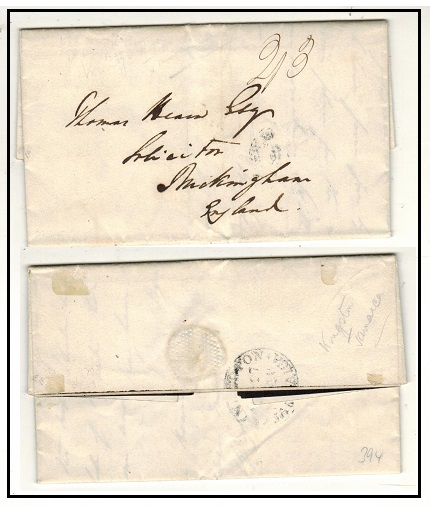 2/3
Thomas Hearn Esqr
Solicitor
Buckingham
England.
Kingston
Jamaica
394